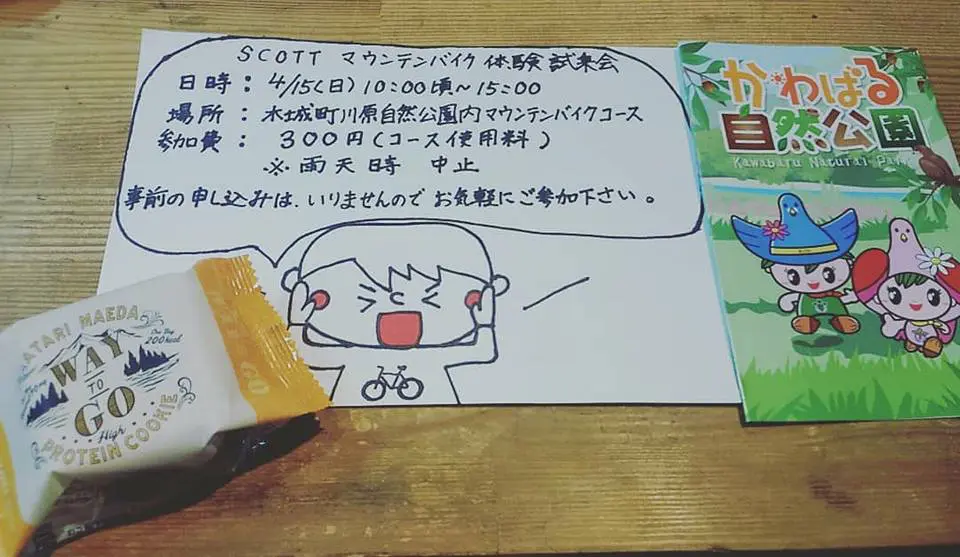 SCOTT マウンテンバイク 体験試乗会
日時: 4/15(日) 10:00頃~15:00
場所: 木城町川原自然公園内マウンテンバイクコース
参加費: 300円(コース使用料)
※雨天時 中止
事前の申し込みは、いりませんので お気軽にご参加下さい。
かわばる
自然公園
Kawabaru Natural Park
ATARI MAEDA
One Bag
200kcal
WAY
TO
GO
High
PROTEIN COOKIE